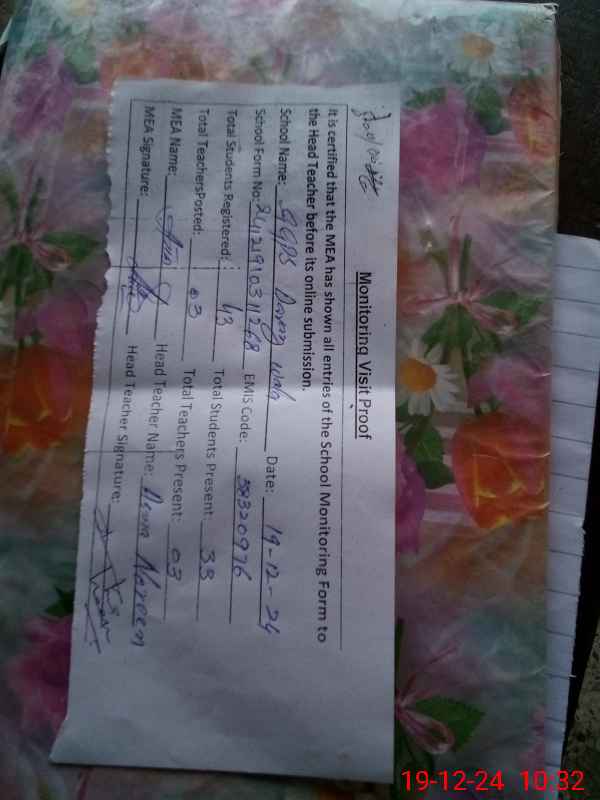 Monitoring Visit Proof
It is certified that the MEA has shown all entries of the School Monitoring Form to
the Head Teacher before its online submission.
School Name: GGPS Date: 19-12-24
School Form No: EMIS Code:
Total Students Registered: 43 Total Students Present: 38
Total TeachersPosted: 03 Total Teachers Present: 03
MEA Name: Head Teacher Name: Nareen
MEA Signature: Head Teacher Signature:
19-12-24 10:32